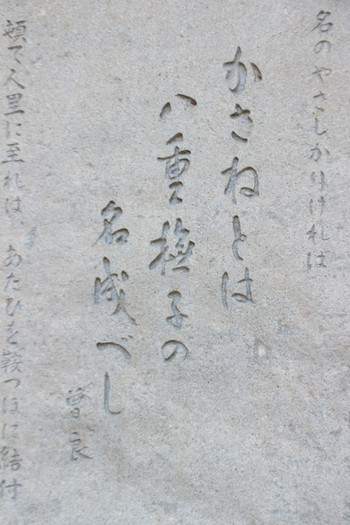 名のやさしかりければ
かさねとは
八重撫子の
名成べし
曽良
頓て人里に至れは、あたひを鞍つほに結付